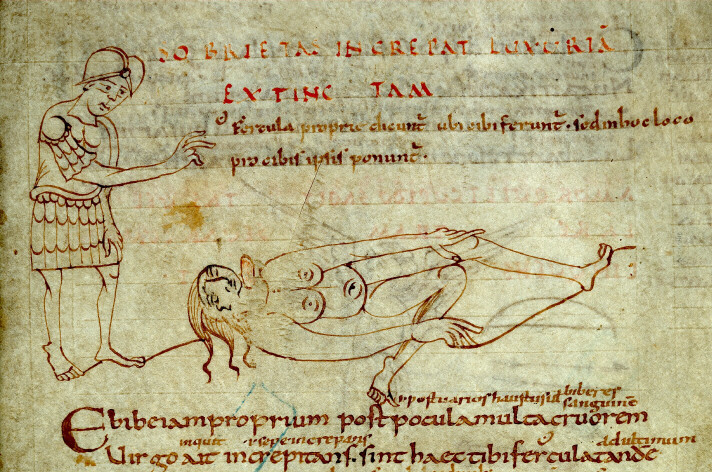 SOBRIETAS INCREPAT LUXURIĀ
EXTINC TAM
Fercula proprie dicunt̄ ubi cibi ferunt̄. sed in hoc loco
pro cibis ipsis ponunt̄.
post varios haustus id biberes
sanguinē
Ebibe iam proprium post pocula multa cruorem
inquit increpans adultimum
Virgo ait increpitans. sint haec tibi fercula tandē